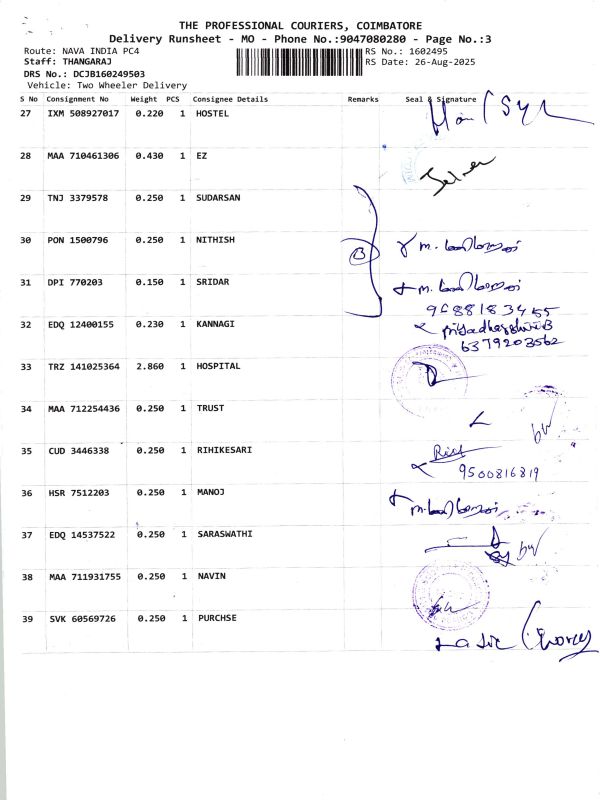 THE PROFESSIONAL COURIERS, COIMBATORE
Delivery Runsheet - MO - Phone No.:9047080280 - Page No.:3
Route: NAVA INDIA PC4 RS No.: 1602495
Staff: THANGARAJ RS Date: 26-Aug-2025
DRS No.: DCJB160249503
Vehicle: Two Wheeler Delivery
S No Consignment No Weight PCS Consignee Details Remarks Seal & Signature
27 IXM 508927017 0.220 1 HOSTEL
28 MAA 710461306 0.430 1 EZ
29 TNJ 3379578 0.250 1 SUDARSAN
30 PON 1500796 0.250 1 NITHISH
31 DPI 770203 0.150 1 SRIDAR
9688183455
32 EDQ 12400155 0.230 1 KANNAGI
6379203562
33 TRZ 141025364 2.860 1 HOSPITAL
34 MAA 712254436 0.250 1 TRUST
35 CUD 3446338 0.250 1 RIHIKESARI
9500816819
36 HSR 7512203 0.250 1 MANOJ
37 EDQ 14537522 0.250 1 SARASWATHI
38 MAA 711931755 0.250 1 NAVIN
39 SVK 60569726 0.250 1 PURCHSE